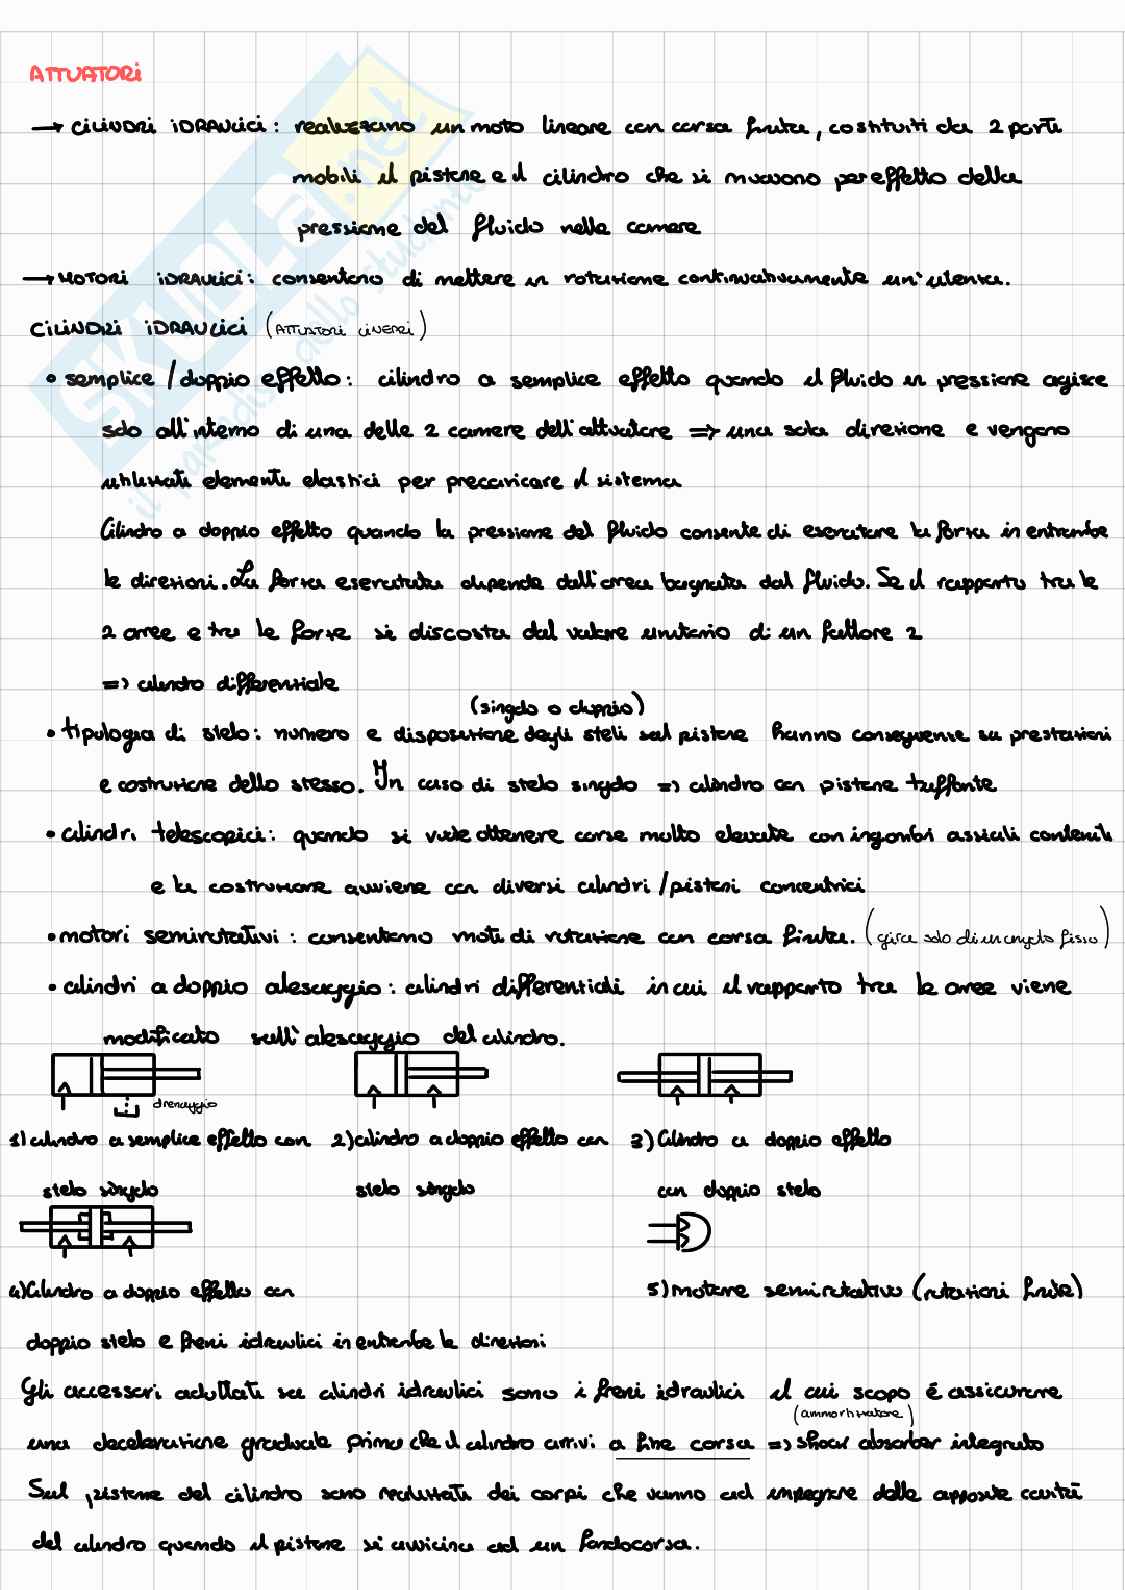 ATTUATORI
→ CILINDRI IDRAULICI: realizzano un moto lineare con corsa finita, costituiti da 2 parti
mobili il pistone e il cilindro che si muovono per effetto della
pressione del fluido nelle camere
→ MOTORI IDRAULICI: consentono di mettere in rotazione continuativamente un'utenza.
CILINDRI IDRAULICI (ATTUATORI LINEARI)
• semplice / doppio effetto: cilindro a semplice effetto quando il fluido in pressione agisce
solo all'interno di una delle 2 camere dell'attuatore => una sola direzione e vengono
utilizzati elementi elastici per precaricare il sistema
Cilindro a doppio effetto quando la pressione del fluido consente di esercitare la forza in entrambe
le direzioni. La forza esercitata dipende dall'area bagnata dal fluido. Se il rapporto tra le
2 aree e tra le forze si discosta dal valore unitario di un fattore 2
=> cilindro differenziale
(singolo o doppio)
• tipologia di stelo: numero e disposizione degli steli sul pistone hanno conseguenze su prestazioni
e costruzione dello stesso. In caso di stelo singolo => cilindro con pistone tuffante
• cilindri telescopici: quando si vuole ottenere corse molto elevate con ingombri assiali contenuti
e la costruzione avviene con diversi cilindri / pistoni concentrici
• motori semirotativi: consentono moti di rotazione con corsa finita. (gira solo di un angolo fisso)
• cilindri a doppio alesaggio: cilindri differenziali in cui il rapporto tra le aree viene
modificato sull'alesaggio del cilindro.
drenaggio
1) cilindro a semplice effetto con 2) cilindro a doppio effetto con 3) Cilindro a doppio effetto
stelo singolo stelo singolo con doppio stelo
4) Cilindro a doppio effetto con 5) motore semirotativo (rotazioni finite)
doppio stelo e freni idraulici in entrambe le direzioni
Gli accessori adottati su cilindri idraulici sono i freni idraulici il cui scopo è assicurare
(ammortizzatore)
una decelerazione graduale prima che il cilindro arrivi a fine corsa => shock absorber integrato
Sul pistone del cilindro sono realizzati dei corpi che vanno ad impegnare delle apposite cavità
del cilindro quando il pistone si avvicina ad un fondocorsa.
SKUOLA.net
il paradiso dello studente